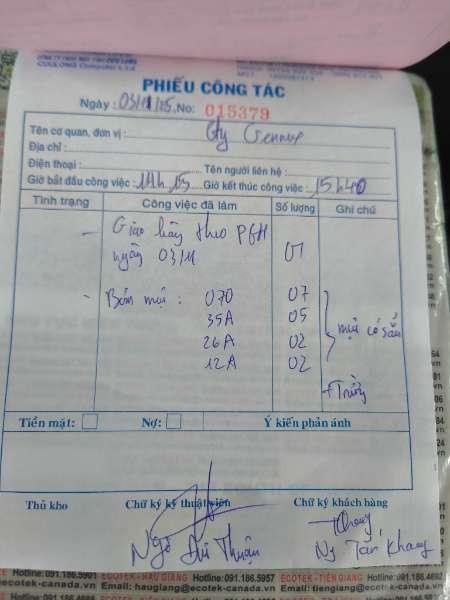 PHIẾU CÔNG TÁC
Ngày : 03/11/15. No: 015379
Tên cơ quan, đơn vị : Cty
Địa chỉ :
Điện thoại : Tên người liên hệ :
Giờ bắt đầu công việc : 14h15 Giờ kết thúc công việc : 15h40
Tình trạng Công việc đã làm Số lượng Ghi chú
- Giao hàng theo PGH
ngày 03/11 01
- Bơm mực : 070 07
35A 05 mực có sẵn
26A 02
12A 02
+ Trống
Tiền mặt: Nợ: Ý kiến phản ánh
Thủ kho Chữ ký kỹ thuật viên Chữ ký khách hàng
Ngô Đức Thuận Ng Tấn Khang
ECOTEK - HẬU GIANG Hotline: 091.186.5957 ECOTEK - TIỀN GIANG Hotline:
ecotek-canada.vn Email: haugiang@ecotek-canada.vn Email: tiengiang@ecotek-canada.vn